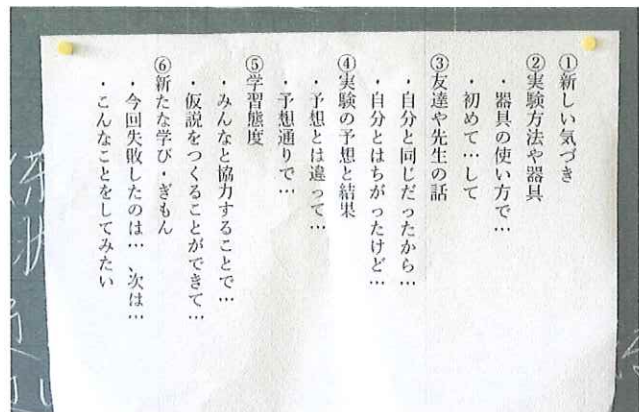 ①新しい気づき
②実験方法や器具
・器具の使い方で…
・初めて…して
③友達や先生の話
・自分と同じだったから…
・自分とはちがったけど…
④実験の予想と結果
・予想とは違って…
・予想通りで…
⑤学習態度
・みんなと協力することで…
・仮説をつくることができて…
⑥新たな学び・ぎもん
・今回失敗したのは… 次は…
・こんなことをしてみたい